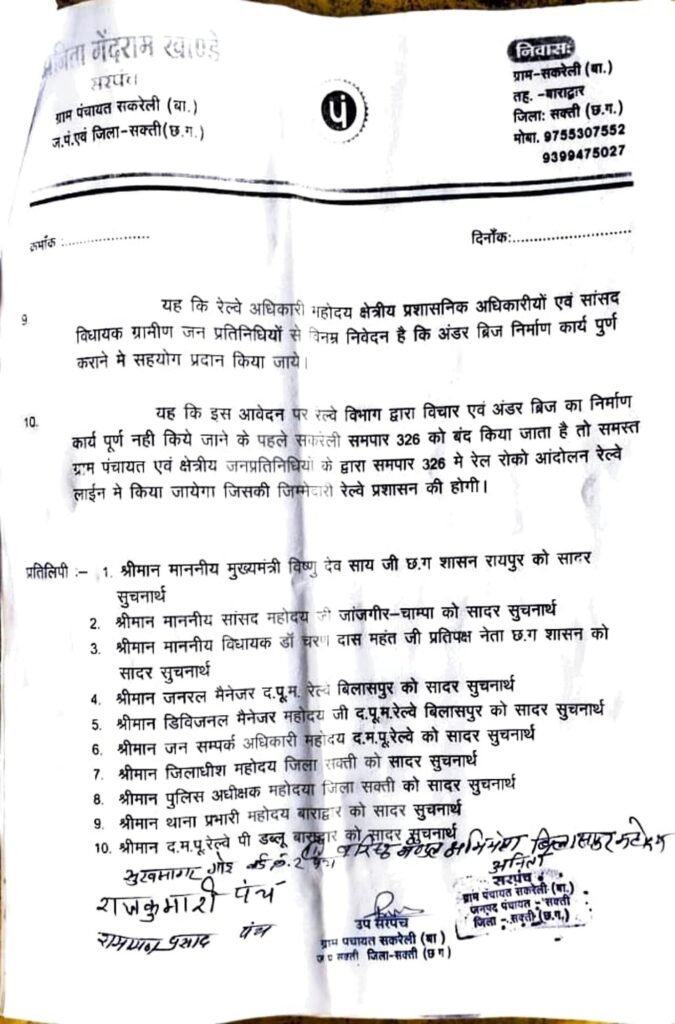 अनिता गेंदराम खाण्डे
सरपंच
ग्राम पंचायत सकरेली (बा.)
ज.पं.एवं जिला-सक्ती (छ.ग.)
पं
निवासः
ग्राम-सकरेली (बा.)
तह. -बाराद्वार
जिलाः सक्ती (छ.ग.)
मोबा. 9755307552
9399475027
क्रमाँक :....................
दिनाँकः............................
9 यह कि रेल्वे अधिकारी महोदय क्षेत्रीय प्रशासनिक अधिकारीयों एवं सांसद
विधायक ग्रामीण जन प्रतिनिधियों से विनम्र निवेदन है कि अंडर ब्रिज निर्माण कार्य पुर्ण
कराने मे सहयोग प्रदान किया जाये।
10. यह कि इस आवेदन पर रेल्वे विभाग द्वारा विचार एवं अंडर ब्रिज का निर्माण
कार्य पूर्ण नही किये जाने के पहले सकरेली समपार 326 को बंद किया जाता है तो समस्त
ग्राम पंचायत एवं क्षेत्रीय जनप्रतिनिधियों के द्वारा समपार 326 मे रेल रोको आंदोलन रेल्वे
लाईन मे किया जायेगा जिसकी जिम्मेदारी रेल्वे प्रशासन की होगी।
प्रतिलिपी :– 1. श्रीमान माननीय मुख्यमंत्री विष्णु देव साय जी छ.ग शासन रायपुर को सादर
सुचनार्थ
2. श्रीमान माननीय सांसद महोदय जी जांजगीर–चाम्पा को सादर सुचनार्थ
3. श्रीमान माननीय विधायक डॉ चरण दास महंत जी प्रतिपक्ष नेता छ.ग शासन को
सादर सुचनार्थ
4. श्रीमान जनरल मैनेजर द.पू.म. रेल्वे बिलासपुर को सादर सुचनार्थ
5. श्रीमान डिविजनल मैनेजर महोदय जी द.पू.म.रेल्वे बिलासपुर को सादर सुचनार्थ
6. श्रीमान जन सम्पर्क अधिकारी महोदय द.म.पू.रेल्वे को सादर सुचनार्थ
7. श्रीमान जिलाधीश महोदय जिला सक्ती को सादर सुचनार्थ
8. श्रीमान पुलिस अधीक्षक महोदया जिला सक्ती को सादर सुचनार्थ
9. श्रीमान थाना प्रभारी महोदय बाराद्वार को सादर सुचनार्थ
10. श्रीमान द.म.पू.रेल्वे पी डब्लू बाराद्वार को सादर सुचनार्थ
वरिष्ठ मण्डल
राजकुमारी पंच
प्रसाद पंच
उप सरपंच
ग्राम पंचायत सकरेली (बा)
ज.प सक्ती जिला-सक्ती (छ ग)
अनिता
सरपंच
ग्राम पंचायत सकरेली (बा.)
जनपद पंचायत - सक्ती
जिला - सक्ती (छ.ग.)